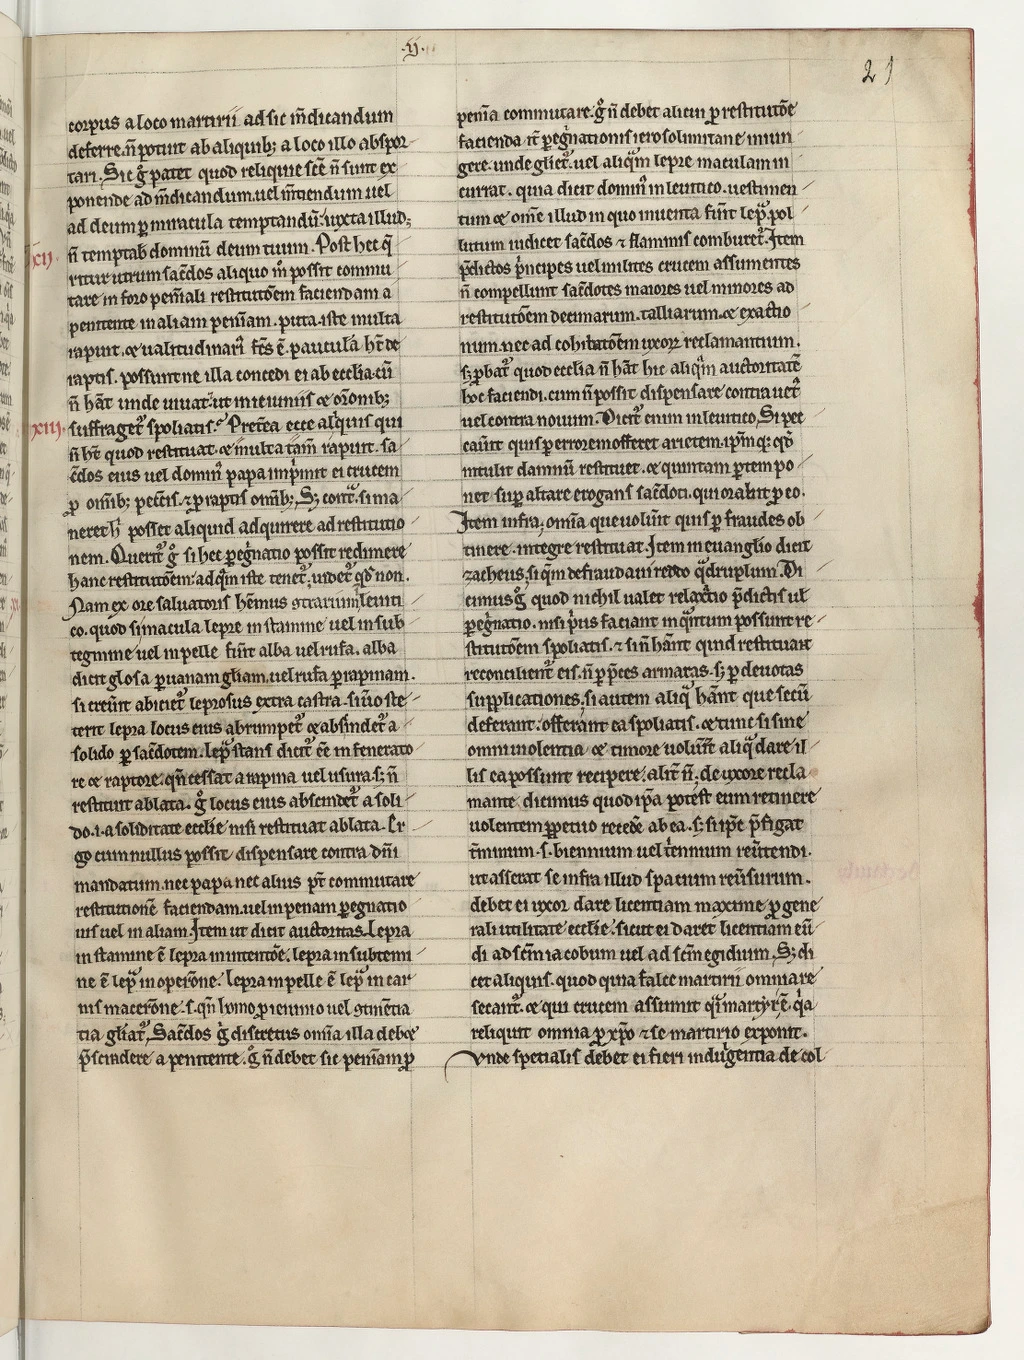 .ij.
21
corpus a loco martirii ad sic m̄dicandum
deferre. n̄ potuit ab aliquib; a loco illo abspor-
tari. Sic g̊ patet quod reliquie sc̄e n̄ sunt ex
ponende ad m̄dicandum. uel m̄tiendum uel
ad deum ꝑ miracula temptandū. iuxta illud;
xij. n̄ temptab̄ dominū deum tuum. Post hec q̄
ritur utrum sac̄dos aliquo m̊ possit commu
tare in foro pen̄iali restitutōem faciendam a
penitente in aliam pen̄iam. puta. iste multa
rapuit. ⁊ ualitudinari᷒ fc̄s ē. paucula h̄t de
raptis. possunt ne illa concedi ei ab ecclia. cū
n̄ hāt unde uiuat. ut ieiuniis ⁊ or̄onib;
xiij. suffraget᷑ spoliatis. Pret̄ea ecce aliquis qui
n̄ h̄t quod restituat. ⁊ multa tam̄ rapuit. sa
c̄dos eius uel domin᷒ papa imp̄init ei crucem
ꝓ om̄ib; pecc̄tis. ⁊ ꝓ raptis om̄ib; S; cont̄. si ma
neret h᷒ posset aliquid adquirere ad restitutio
nem. Querit᷑ g̊ si hec ꝑeg̊natio possit redimere
hanc restitutōem. ad q̄m iste tenet᷑. uidet᷑ qd̄ non.
Nam ex ore saluatoris hēmus gtrarium. leuiti
co. quod si macula lepre in stamine uel in sub
tegmine uel in pelle fūit alba uel rufa. alba
dicit glosa ꝑ uanam gliam. uel rufa ꝑ rapinam.
si creūit abiciet᷑ leprosus extra castra. si ū o ste
terit lepra locus eius abrumpet᷑ ⁊ absindet᷑ a
solido ꝑ sac̄dotem. lep̄ stans dicit᷑ ēē in fenerato
re ⁊ raptore. qn̄ cessat a rapina uel usura. s; n̄
restituit ablata. g̊ locus eius abscindet᷑ a soli
do .i. a soliditate ecclie nisi restituat ablata. Er
go cum nullus possit dispensare contra dn̄i
mandatum. nec papa nec alius pt̄ commutare
restitutionē faciendam. uel in penam ꝑegnatio
nis uel in aliam. Item ut dicit auctoritas. Lepra
in stamine ē lepra in intentōe. lepra in subtemi
ne ē lep̄ in operōne. lepra in pelle ē lep̄ in car
nis maceōne .s. qn̄ homo ꝓ ieiunio uel gtinētia
tia gliat᷑. Sac̄dos g̊ discretus om̄ia illa debet
p̄scindere a penitente. g̊ n̄ debet sic pen̄iam ꝑ
pen̄ia commutare. g̊ n̄ debet alicui ꝓ restitutōe
facienda it̄ ꝑeg̊nationis ierosolimitane iniun
gere. unde gliet᷑. uel aliq̄m lepre maculam in
currat. quia dicit domin᷒ in leuitico. uestimen
tum ⁊ om̄e illud in quo inuenta fūit lep̄. pol
lutum iudicet sac̄dos ⁊ flammis comburet᷑. Item
p̄dictos p̊ncipes uel milites crucem assumentes
n̄ compellunt sac̄dotes maiores uel minores ad
restitutōem decimarum. talliarum. ⁊ exactio
num. nec ad cohibitatōem uxor᷒ reclamantium.
s; ꝓbat᷑ quod ecclia n̄ hāt hic aliq̄m auctoritatē
hoc faciendi. cum n̄ possit dispensare contra uet᷒
uel contra nouum. Dicit᷑ enim in leuitico, Si pec
cauit quis ꝑ errorem offeret arietem. ip̄mq; qd̄
intulit damnū restituet. ⁊ quintam ꝑtem po
net suꝑ altare erogans sac̄doti. qui orabit ꝓ eo.
Item infra; om̄ia que uolūit quis ꝑ fraudes ob
tinere. integre restituat. Item in euanglio dicit
zacheus. si q̄m defraudaui reddo q̄druplum. Di
cimus g̊ quod nichil ualet relax̄tio p̄dictis ul̄
ꝑeg̊natio. nisi p̊us faciant in q̄ntum possunt re
stitutōem spoliatis. ⁊ si n̄ hānt quid restituant
reconcilient᷑ eis. n̄ ꝑ p̄ces armatas. s; ꝑ deuotas
supplicationes. si autem aliq̄ hānt que secū
deferant. offerānt ea spoliatis. ⁊ tunc si sine
omni uiolentia ⁊ timore uolūit aliq̄ dare il
lis ea possunt recipere. alit̄ n̄; de uxore recla
mante dicimus quod ip̄a potest eum retinere
uolentem ꝑpetuo recedē ab ea. s; si ip̄e p̄figat
t̄minum .s. biennium uel t̄ennium reūtendi.
ut asserat se infra illud spacium reūsurum.
debet ei uxor dare licentiam maxime ꝓ gene
rali utilitate ecclie. sicut ei daret licentiam eū
di ad sc̄m iacobum uel ad sc̄m egidium. S; di
cet aliquis. quod quia falce martirii omnia re
secant᷑. ⁊ qui crucem assumit q̄i martyr ē. q̄a
reliquit omnia ꝓ xp̄o ⁊ se martirio exponit.
Vnde specialis debet ei fieri indulgentia de col